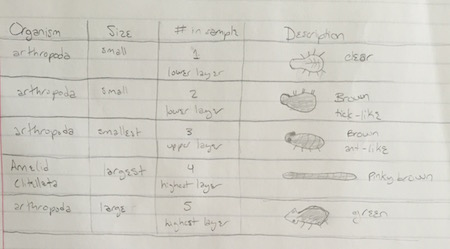 Organism Size # in sample Description
arthropoda small 1 clear
lower layer
arthropoda small 2 Brown
lower layer tick-like
arthropoda smallest 3 Brown
upper layer ant-like
Amelid largest 4 Pinky brown
Clitellata highest layer
arthropoda large 5 green
highest layer